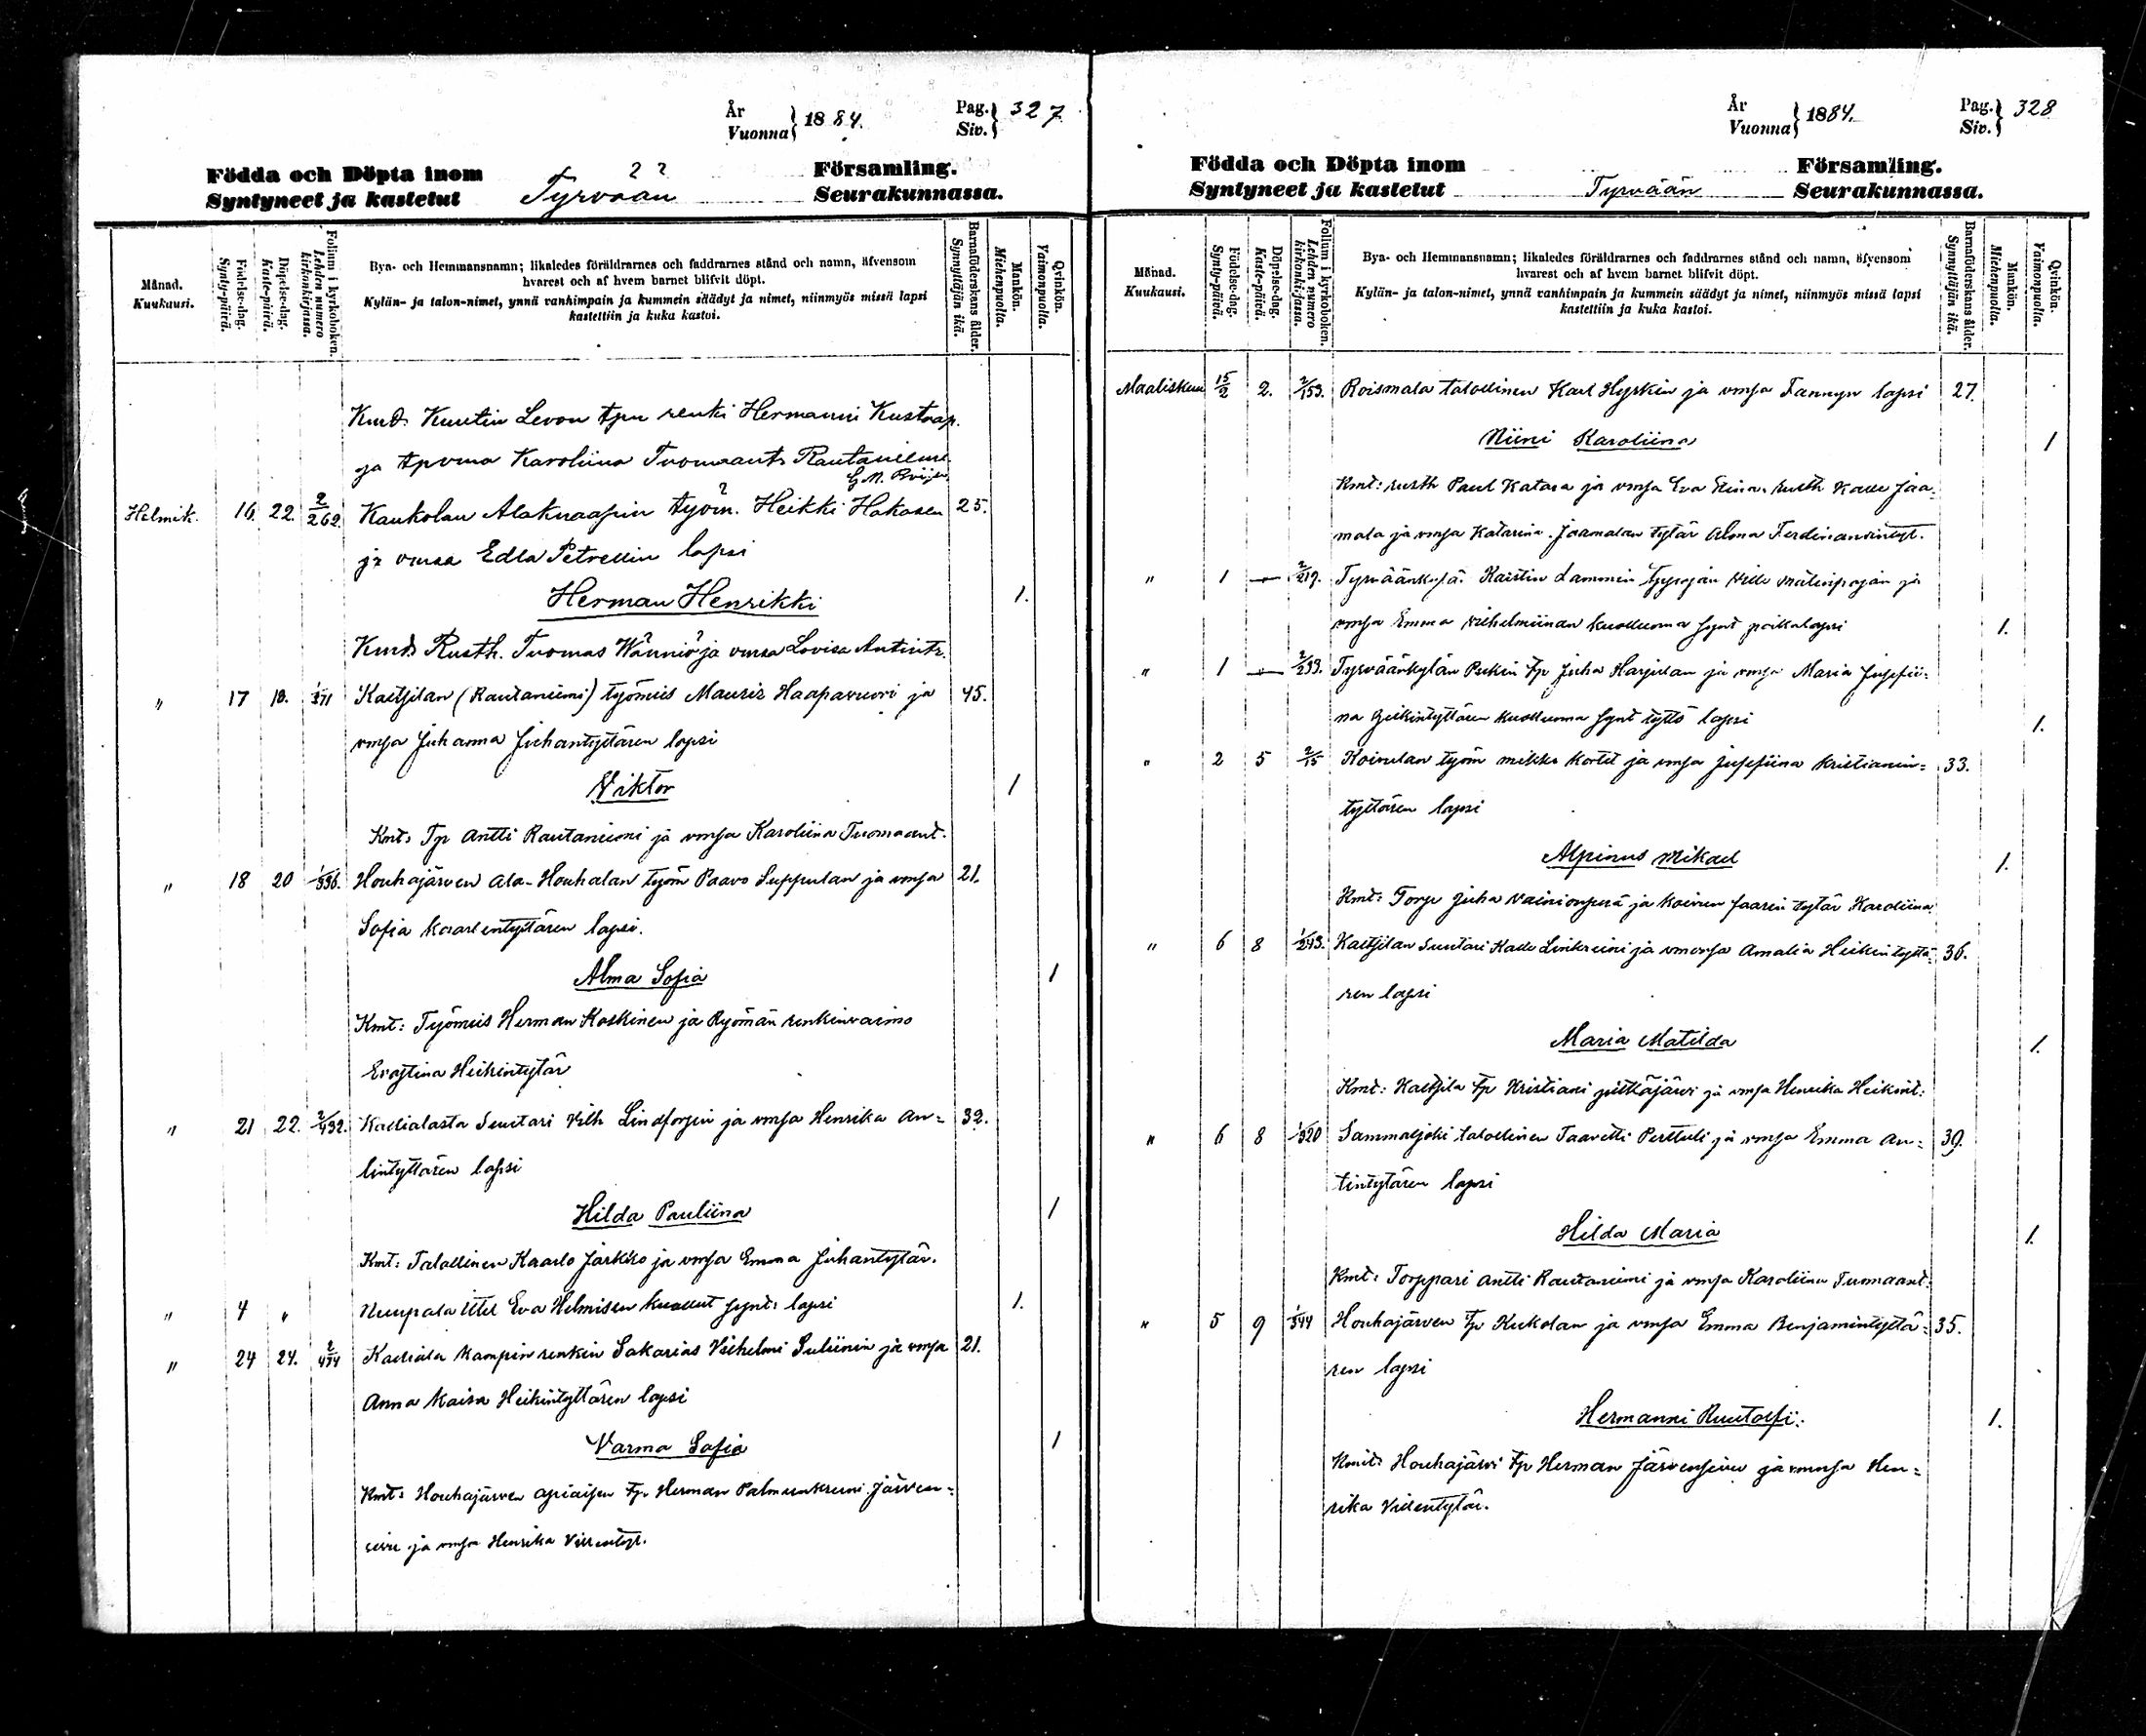 År
Vuonna } 1884.
Pag.
Siv. } 327
Födda och Döpta inom Församling.
Syntyneet ja kastetut Tyrvään Seurakunnassa.
Månad.
Kuukausi.
Födelse-dag.
Synty-päivä.
Döpelse-dag.
Kaste-päivä.
Folium i kyrkoboken.
Lehden numero kirkonkirjassa.
Bya- och Hemmansnamn; likaledes föräldrarnes och faddrarnes stånd och namn, äfvensom
hvarest och af hvem barnet blifvit döpt.
Kylän- ja talon-nimet, ynnä vanhimpain ja kummein säädyt ja nimet, niinmyös missä lapsi
kastettiin ja kuka kastoi.
Barnaföderskans ålder.
Synnyttäjän ikä.
Mankön.
Miehenpuolta.
Qvinkön.
Vaimonpuolta.
Kmd. Levon tpn renki Hermanni
ja Karoliina Tuomaant. Rautaniemi
Helmik. 16. 22. 2/262. Kaukolan Alaknaapin työm. Heikki Hakasen 25.
ja vmsa Edla Petrellin lapsi
Herman Henrikki 1.
Kmd. Rusth. Tuomas Wänniö ja vmsa Lovisa Antintr.
" 17 18. 1/371 Kaltsilan (Rautaniemi) työmies Mauriz Haapavuori ja 45.
vmsa Juhanna Juhantyttären lapsi
Viktor 1
Kmt: Tp Antti Rautaniemi ja vmsa Karoliina Tuomaant.
" 18 20 1/336. Houhajärven Ala-Houhalan työm Paavo Seppulan ja vmsa 21.
Sofia Kaarlentyttären lapsi.
Alma Sofia 1
Kmt: Työmies Herman Koskinen ja Ryömän renkinvaimo
Evastina Heikintytär
" 21 22. 2/432. Kallialasta Suutari Vilh Lindforsin ja vmsa Henrika An= 32.
tintyttären lapsi
Hilda Pauliina 1
Kmt: Talollinen Kaarlo Jarkko ja vmsa Emma Juhantytär.
" 4 " Nuupala ittel Eva Helmisen kuollut synt: lapsi 1.
" 24 24. 2/474 Kalliala Kampin renkin Sakarias Vilhelmi Juliinin ja vmsa 21.
Anna Maisa Heikintyttären lapsi
Varma Sofia 1
Kmt: Houhajärven tp. Herman Järven=
ja vmsa Henrika
År
Vuonna } 1884.
Pag.
Siv. } 328
Födda och Döpta inom Församling.
Syntyneet ja kastetut Tyrvään Seurakunnassa.
Månad.
Kuukausi.
Födelse-dag.
Synty-päivä.
Döpelse-dag.
Kaste-päivä.
Folium i kyrkoboken.
Lehden numero kirkonkirjassa.
Bya- och Hemmansnamn; likaledes föräldrarnes och faddrarnes stånd och namn, äfvensom
hvarest och af hvem barnet blifvit döpt.
Kylän- ja talon-nimet, ynnä vanhimpain ja kummein säädyt ja nimet, niinmyös missä lapsi
kastettiin ja kuka kastoi.
Barnaföderskans ålder.
Synnyttäjän ikä.
Mankön.
Miehenpuolta.
Qvinkön.
Vaimonpuolta.
Maaliskuu 15/2 2. 2/153. Roismala talollinen Karl Hyrkin ja vmsa Fannyn lapsi 27.
Niini Karoliina 1
Kmt: rusth Paul Katara ja vmsa Eva Stina. rusth Kalle Jaa=
mala ja vmsa Katarina. Jaamalan tytär Alma Ferdinandintyt.
" 1 — 2/219. Tyrväänkylä Kaistin Lammin Ville ja
vmsa Emma Vilhelmiinan kuolluena synt poikalapsi 1.
" 1 — 2/233. Tyrväänkylän Pukin tp Juha Harjulan ja vmsa Maria Josefii=
na Heikintyttären kuolluena synt tyttö lapsi 1.
" 2 5 2/15 Koivulan työm Mikko Kortet ja vmsa Josefiina Kristianin= 33.
tyttären lapsi
Alpinus Mikael 1.
Kmt: Torp Juha Vainionperä ja tytär Karoliina
" 6 8 1/243. Kaltsilan Suutari Kalle ja vmonsa Amalia Heikintyttä= 36.
ren lapsi
Maria Matilda 1.
Kmt: Kaltsila tp Kristiani ja vmsa Henrika Heikint:
" 6 8 1/320 Sammaljoki talollinen Taavetti Perttuli ja vmsa Emma An= 39.
tintytären lapsi
Hilda Maria 1.
Kmt: Torppari Antti Rautaniemi ja vmsa Karoliina Tuomaant.
" 5 9 1/344 Houhajärven tp Kukolan ja vmsa Emma Benjamintyttä= 35.
ren lapsi
Hermanni Ruutolfi. 1.
Kmt: Houhajärvi tp Herman Järvensivu ja vmnsa Hen=
rika Villentytär.